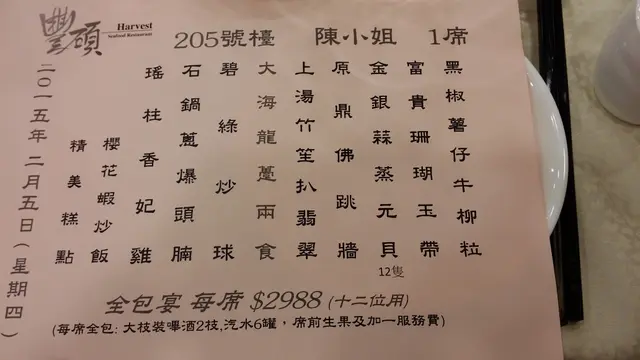 豐碩
Harvest
Seafood Restaurant
205號檯 陳小姐 1席
黑椒薯仔牛柳粒
富貴珊瑚玉帶
金銀蒜蒸元貝
12隻
原鼎佛跳牆
上湯竹笙扒翡翠
大海龍躉兩食
碧綠炒球
石鍋蔥爆頭腩
瑤柱香妃雞
櫻花蝦炒飯
精美糕點
二0一五年二月五日(星期四)
全包宴 每席 $2988 (十二位用)
(每席全包: 大枝裝啤酒2枝,汽水6罐，席前生果及加一服務費)